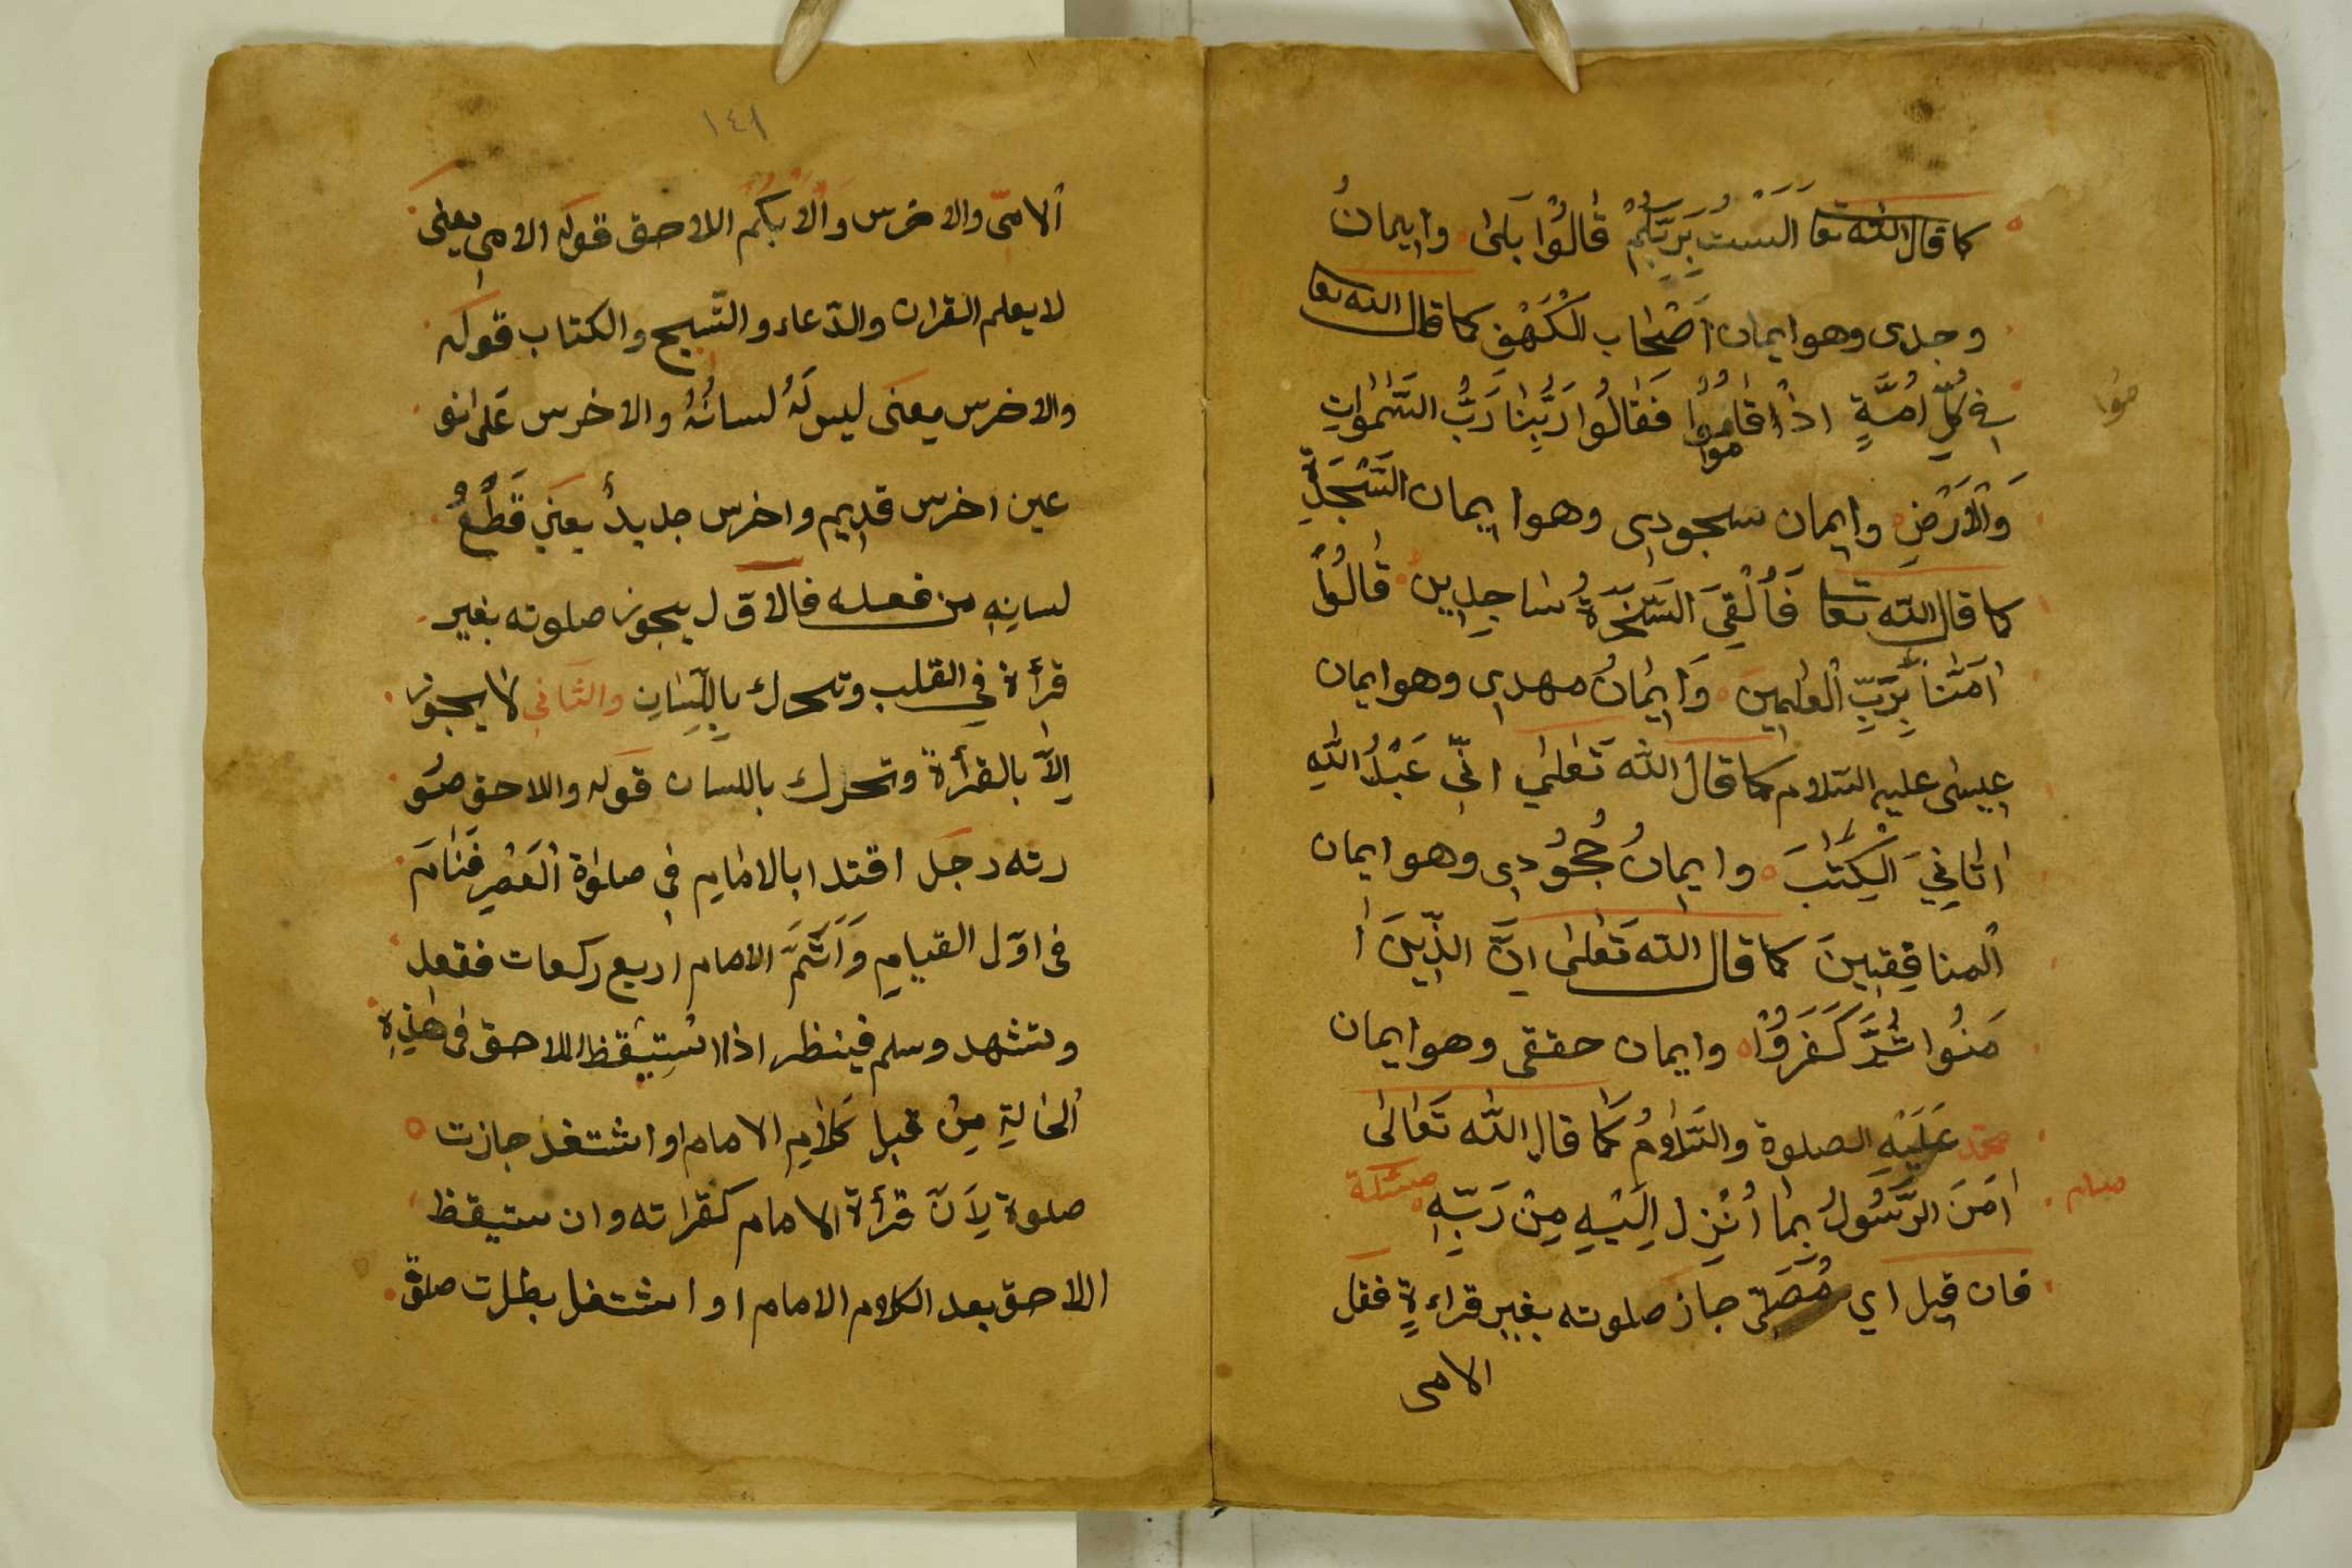 كما قال الله تعا اَلَسْتُ بِرَبِّكُمْ قٰالُوْا بَلىٰ وايمانُ
وجدى وهو ايمان اَصْحٰاب الْكَهْفِ كما قال الله تعا
فى كُلِّ اُمَّةٍ اذْ اقٰامُوا فَقٰالُوا رَبُّنٰا رَبُّ السَّمٰوٰاتِ
موا
وَالْاَرْضِ وايمان سجودى وهو ايمان السَّجَدَةِ
كما قال الله تعا فَاُلْقِىَ السَّحَرَةُ سٰاجِدِينَ قٰالُوْا
اٰمَنّٰا بِرَبِّ الْعٰلمِينَ وَايمٰانُ مهدى وهو ايمان
عيسٰى عليه السّلام كما قال الله تَعٰلىٰ انّى عَبْدُ اللّٰهِ
اٰتٰانِىَ الْكِتٰبَ وايمانُ جُحُودى وهو ايمان
اَلمنافِقِينَ كما قال الله تَعٰلىٰ انَّ الذّينَ اٰ
مَنُوا ثُمَّ كَفَرَوُا وايمان حققى وهو ايمان
محمّد عَلَيْهِ الصلوة والسَّلٰامُ كَمٰا قال اللّٰه تَعٰالىٰ
اٰمَنَ الرَّسُولُ بِمٰا اُنْزِلَ اِلَيْهِ مِنْ رَبِّهِ مسئلة
فان قيل اي مُصَلّى جاز صلوته بغير قراءةٍ فقل
الامى
موا
١٤١
اَلامّى والاخرس وَاْلاَبْكَمُ اللاحق قوله الامى يعنى
لا يعلم القران والدّعاء والتّسبح والكتاب قوله
والاخرس يعنى ليس لَهُ لسانُهُ والاخرس عَلىٰ نو
عين اخرس قديم واخرس جديدٌ يعنى قَطْعُ
لسانِهِ من فعله فالاوّل يجوز صلوته بغير
قرأة فى القلب وتحرك بِاللِّسٰانِ والثّانى لا يجوز
اِلاَّ بالقرأة وتحرك باللسان قوله واللاحق صُو
رته رجل اقتدا بالامٰامِ فى صلوٰة الْعَصْرِ فَنٰامَ
فى اوّل القيامِ وَاَتَمَّ الامام اربع ركعات فقعد
وتشهد وسلم فينظر اذا اسْتيْقظ اللاحق فى هٰذِهِ
اَلحٰالةِ مِنْ قبل كَلٰامِ الامام او اشتغل جازت
صلوة لِاَنّ قرأة الامام كقراته وان ستيقظ
اللاحق بعد الكلام الامام او اشتغل بطلت صلوة